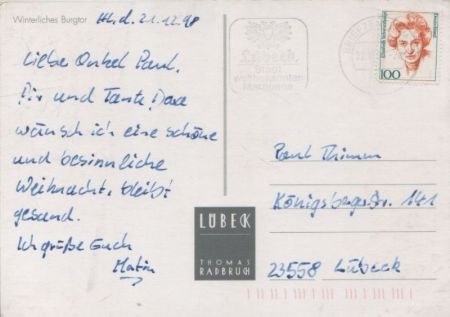 Winterliches Burgtor
d. 21.12.98
Liebe Onkel Paul.
Dir und Tante
wünsch ich eine schöne
und besinnliche
Weihnacht, bleibt
gesund.
Ich grüße Euch
Martin
Lübeck
Stadt
weltbekannter
Marzipane
Deutschland
100
Paul Thimm
Königsbergerstr. 141
23558 Lübeck
LÜBECK
THOMAS
RADBRUCH